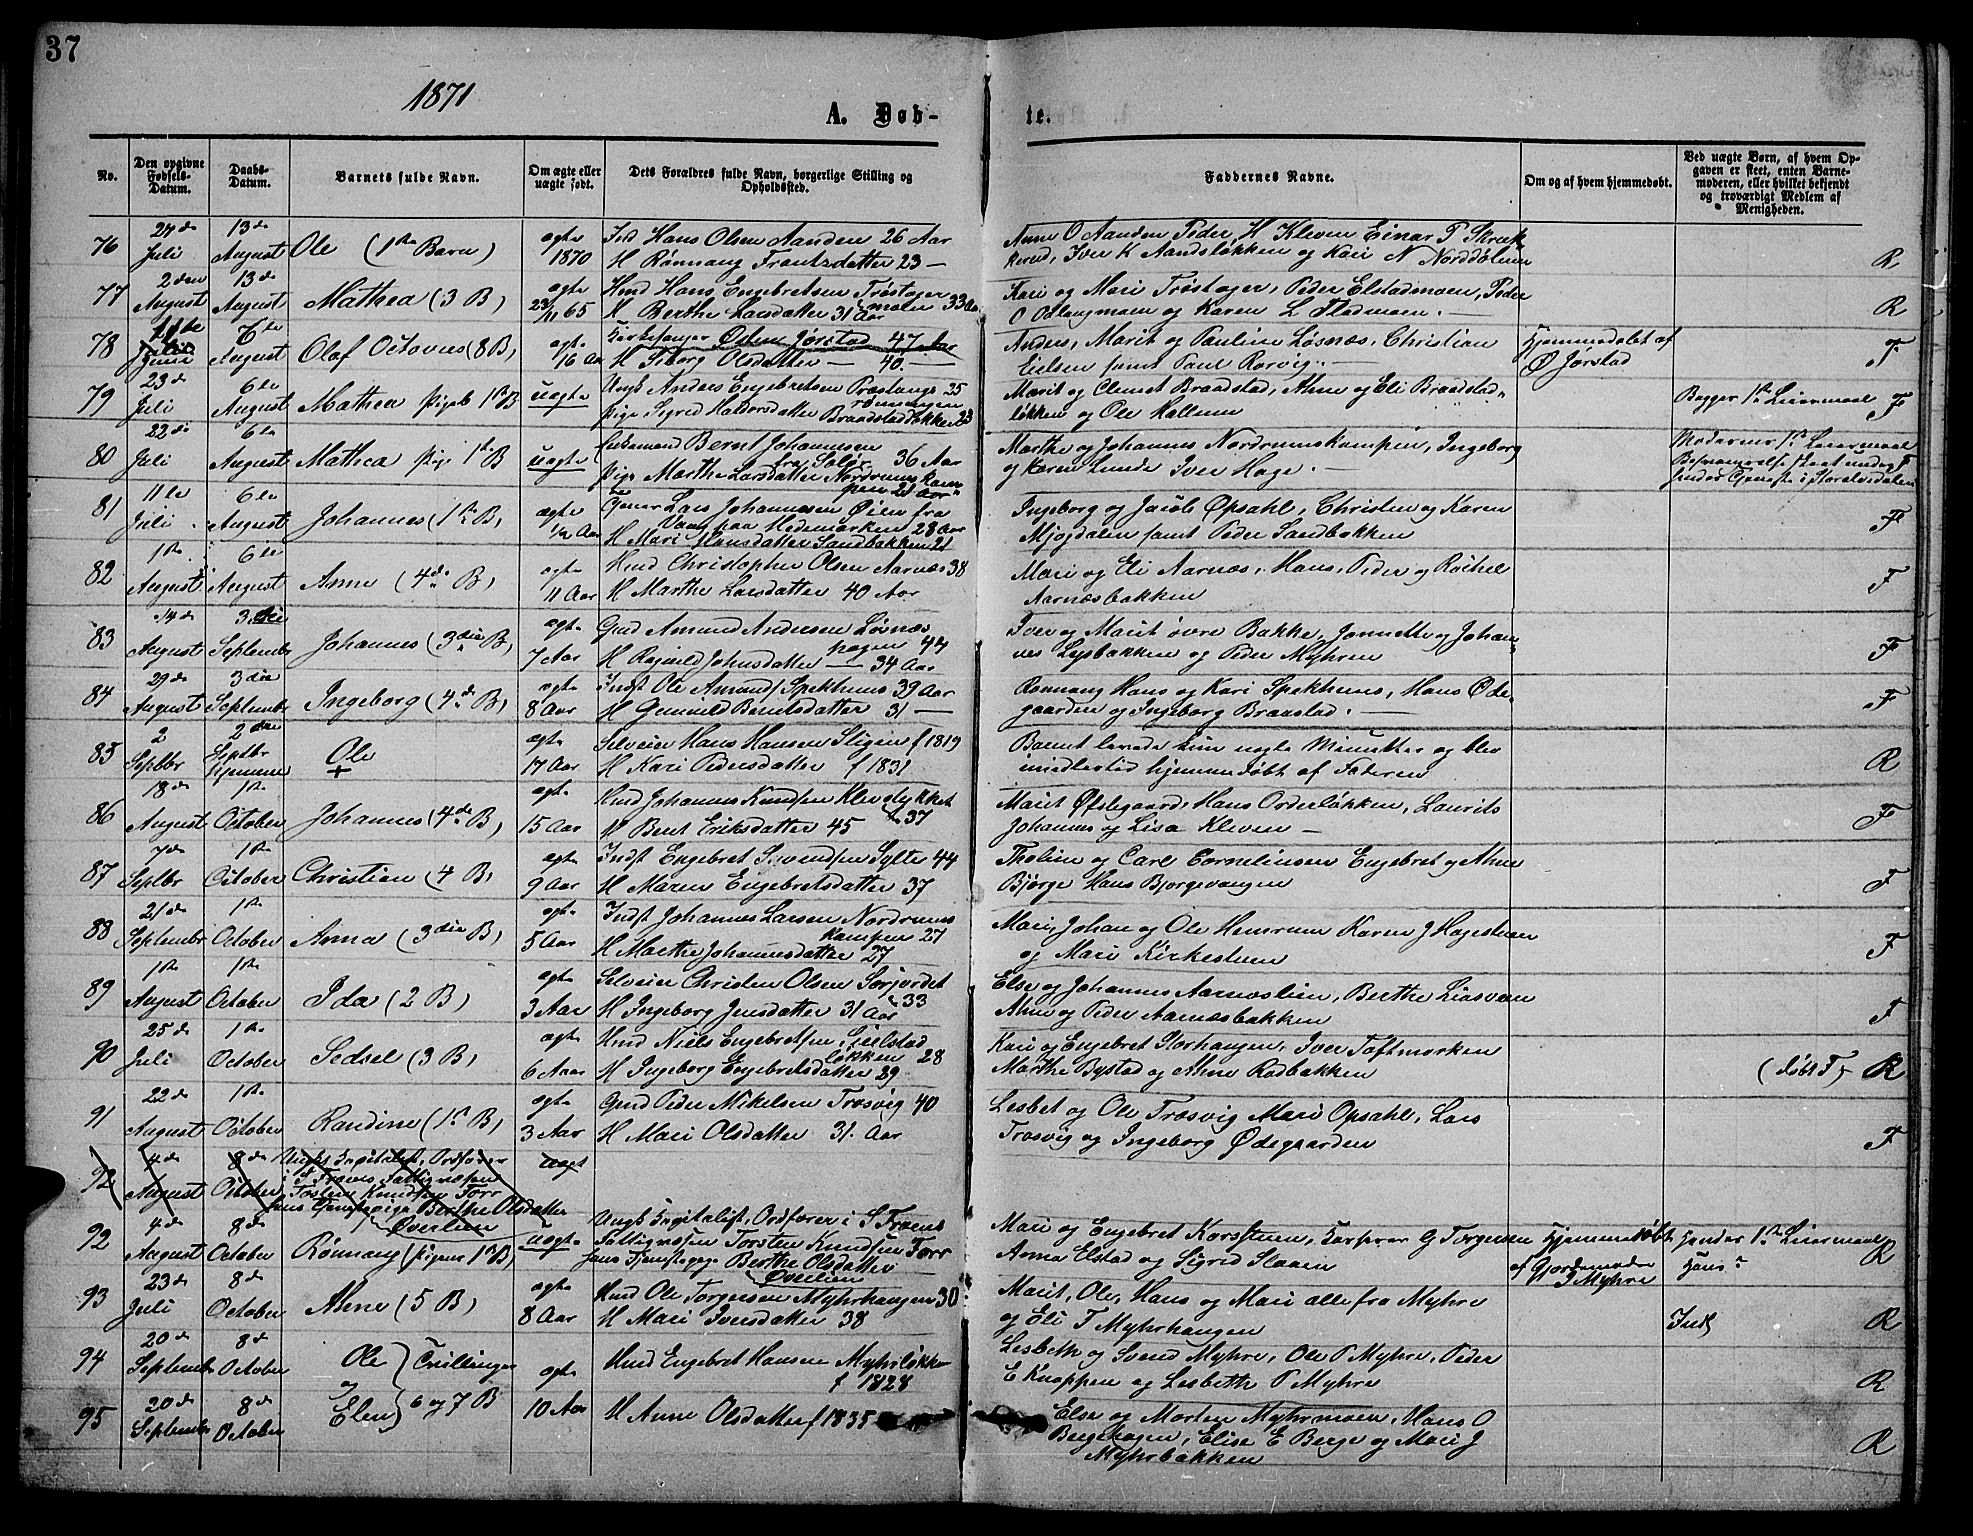 37
1871
A. Døb-
te.
No.
Den opgivne Fødsels-Datum.
Daabs-Datum.
Barnets fulde Navn.
Om ægte eller uægte født.
Dets Forældres fulde Navn, borgerlige Stilling og Opholdssted.
Faddernes Navne.
Om og af hvem hjemmedøbt.
Ved uægte Børn, af hvem Opgaven er skeet, enten Barnemoderen, eller hvilket bekjendt og troværdigt Medlem af Menigheden.
76 27de Juli 13de August Ole (1ste Barn) ægte 1870
Hans Olsen Aanden 26 Aar
H Rønnaug Frantzdatter 23 —
Anne O Aanden Peder H Kleven Einar P Skrekkerud, Iver K Aandsløkken og Kari N Norddølum
R
77 2den August 13de August Mathea (3 B) ægte 23/11 65
Hmd Hans Engebretsen Trøstagermoien 33 Aar
H Berthe Larsdatter 31 Aar
Kari og Mari Trøstager, Peder Elstadmoen, Peder O Ostangmoen og Karen L Fladmoen. —
R
78 11de Juni 6te August Olaf Octovius (8 B) ægte 16 Aar
Kirkesanger Østen Jørstad 47 Aar
H Siborg Olsdatter — 40. —
Anders, Marit og Pauline Løsnæs, Christian Eielsen samt Paul Rørvig. —
Hjemmedøbt af Ø Jørstad
F
79 23de Juli 6te August Mathea Pigeb 1ste B uægte
Ungk Anders Engebretsen Præstangs 25
Pige Sigrid Haldorsdatter Braadstadløkken 23
Marit og Clemet Braadstad, Anne og Eli Braadstadløkken og Ole Hallum
Begges 1ste Leiermaal
F
80 22de Juli 6te August Mathea Pige 1ste B uægte
Enkemand Bernt Johannesen fra Solør 36 Aar
Pige Marthe Larsdatter Nordrumskampen 21 Aar
Marthe og Johannes Nordrumskampen, Ingeborg og Karen Lunde Iver Hage. —
Moderens 1ste Leiermaal
F
81 11te Juli 6te August Johannes (1ste B) ægte 1/2 Aar
Lars Johannesen Øien fra Vang paa Hedemarken 28 Aar
H Mari Hansdatter Sandbakken 21
Ingeborg og Jacob Opsahl, Christen og Karen Mjogdalen samt Peder Sandbakken
F
82 1ste August 6te August Anne (4de B) ægte 11 Aar
Hmd Christopher Olsen Aarnæs 38
H Marthe Larsdatter 40 Aar
Mari og Eli Aarnæs, Hans, Peder og Rachel Aarnæsbakken
F
83 14de August 3die Septembr Johannes (3die B) ægte 7 Aar
Gmd Amund Andersen Løsnæshagen 44
H Ragnild Johnsdatter — 34 Aar
Iver og Marit øvre Bakke, Jannette og Johannes Lysbakken og Peder Myhren
F
84 29de August 3die Septembr Ingeborg (4de B) ægte 8 Aar
Indst Ole Amunds Spekhuus 39 Aar
H Gunnild Berntsdatter 31 —
Rønnaug Hans og Kari Spekhuus, Hans Ødegaarden og Ingeborg Braastad. —
F
85 2 Septbr 2den Septbr hjemme Ole + ægte 17 Aar
Selveier Hans Hansen Stigen f 1819
H Kari Pedersdatter f 1831
Barnet levede kun nogle Minutter og blev imidlertid hjemmedøbt af Faderen
R
86 18de August 1ste October Johannes (4de B) ægte 15 Aar
Hmd Johannes Knudsen Klevstykket 37
H Berit Eriksdatter 45
Marit Øfstegaard, Hans Orderløkken, Laurits Johannes og Lisa Kleven —
F
87 7de Septbr 1ste October Christian (4 B) ægte 9 Aar
Indst Engebret Svendsen Sylte 44
H Maren Engebretsdatter 37
Tholine og Carl Cornelius­sen Engebret og Anne Bjørge Hans Bjørgevangen
F
88 21de Septembr 1ste October Anna (3die B) ægte 5 Aar
Indst Johannes Larsen Nordrumskampen 27
H Marthe Johannesdatter 27
Mari, Johan og Ole Hemrum Karen J Hagestuen og Mari Kirkestuen
F
89 1ste August 1ste October Ida (2 B) ægte 3 Aar
Selveier Christen Olsen Sørjordet 33
H Ingeborg Jensdatter 31 Aar
Else og Johannes Aarnæslien, Berthe Liasveen Anne og Peder Aarnæsbakken
F
90 25de Juli 1ste October Sedsel (3 B) ægte 6 Aar
Hmd Niels Engebretsen Eielstadløkken 28
H Ingeborg Engebretsdatter 29
Kari og Engebret Storhaugen, Iver Toftmarken Marthe Bystad og Anne Rødbakken
(døbt F) R
91 22de August 1ste October Randine (1ste B) ægte 3 Aar
Gmd Peder Mikelsen Trosvig 40
H Mari Olsdatter 31. Aar
Lesbet og Ole Trosvig Mari Opsahl, Lars Trosvig og Ingeborg Ødegaarden
F
92 4de August 8de October Ungk Kapitalist, Ordfører i S Frons Fattigvæsen Torsten Knudsen Forr hans Tjenstepige Berthe Olsdatter Øverlien uægt
92 4de August 8de October Rønnaug (pigens 1ste B) uægte
Ungk Kapitalist, Ordfører i S Frons Fattigvæsen Torsten Knudsen Forr
hans Tjenstepige Berthe Olsdatter Øverlien
Mari og Engebret Korsstuen, Casperar G Torgersen Anna Elstad og Sigrid Slaaen
Hjemmedøbt af Gjordemoder J Myhre
hendes 1ste Leiermaal hans
R
93 23de Juli 8de October Anne (5 B) ægte 8 Aar
Hmd Ole Torgersen Myhrhaugen 30
H Mari Iversdatter 38
Marit, Ole, Hans og Mari alle fra Myhre og Eli T Myhrhaugen
R
94 20de Septembr 8de October Ole
og
Tvillinger 6 og 7 B
ægte 10 Aar
Hmd Engebret Hansen Myhrløkken f 1828
Lesbeth og Svend Myhre, Ole P Myhre, Peder E Knappen og Lesbeth P Myhre
R
95 20de Septembr 8de October Elen
H Anne Olsdatter f 1835
Else og Morten Myhrmoen, Hans O Bergehagen, Elise E Berge og Mari J Myhrbakken
R